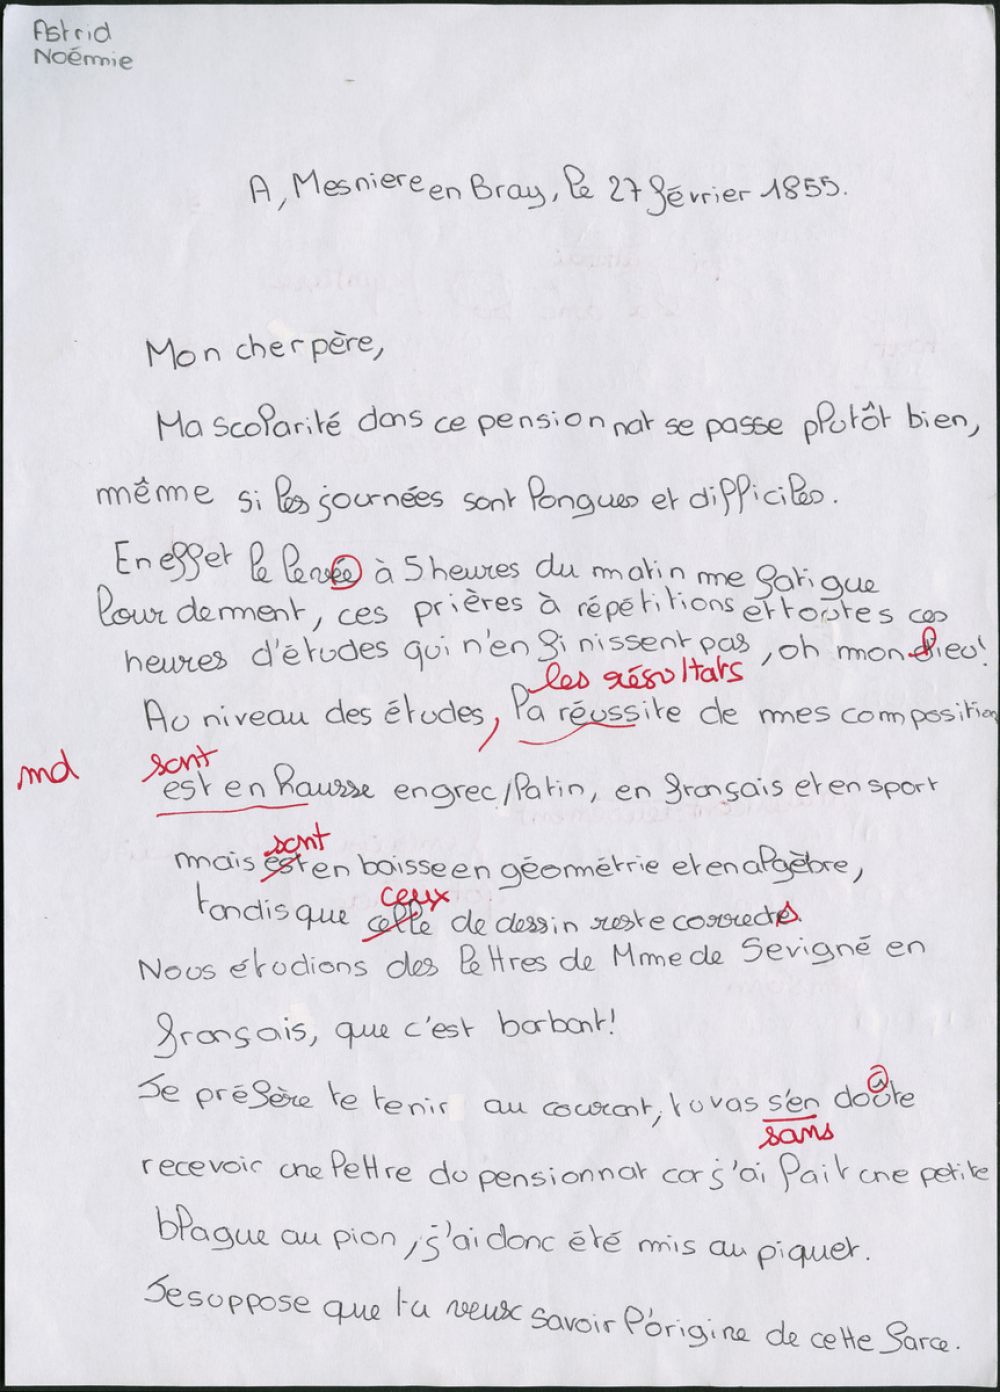 Astrid
Noémie
A, Mesniere en Bray, le 27 février 1855.
Mon cher père,
Ma scolarité dans ce pensionnat se passe plutôt bien,
même si les journées sont longues et difficiles.
En effet le levée à 5 heures du matin me fatigue
lourdement, ces prières à répétitions et toutes ces
heures d'études qui n'en finissent pas, oh mon Dieu!
les résultats
Au niveau des études, la réussite de mes composition
md sont
est en hausse en grec/latin, en français et en sport
sont
mais est en baisse en géométrie et en algèbre,
ceux
tandis que celle de dessin reste corrects.
Nous étudions des lettres de Mme de Sevigné en
français, que c'est barbant!
Je préfère te tenir au courant, tu vas s'en doûte
sans
recevoir une lettre du pensionnat car j'ai fait une petite
blague au pion, j'ai donc été mis au piquet.
Je suppose que tu veux savoir l'origine de cette farce.